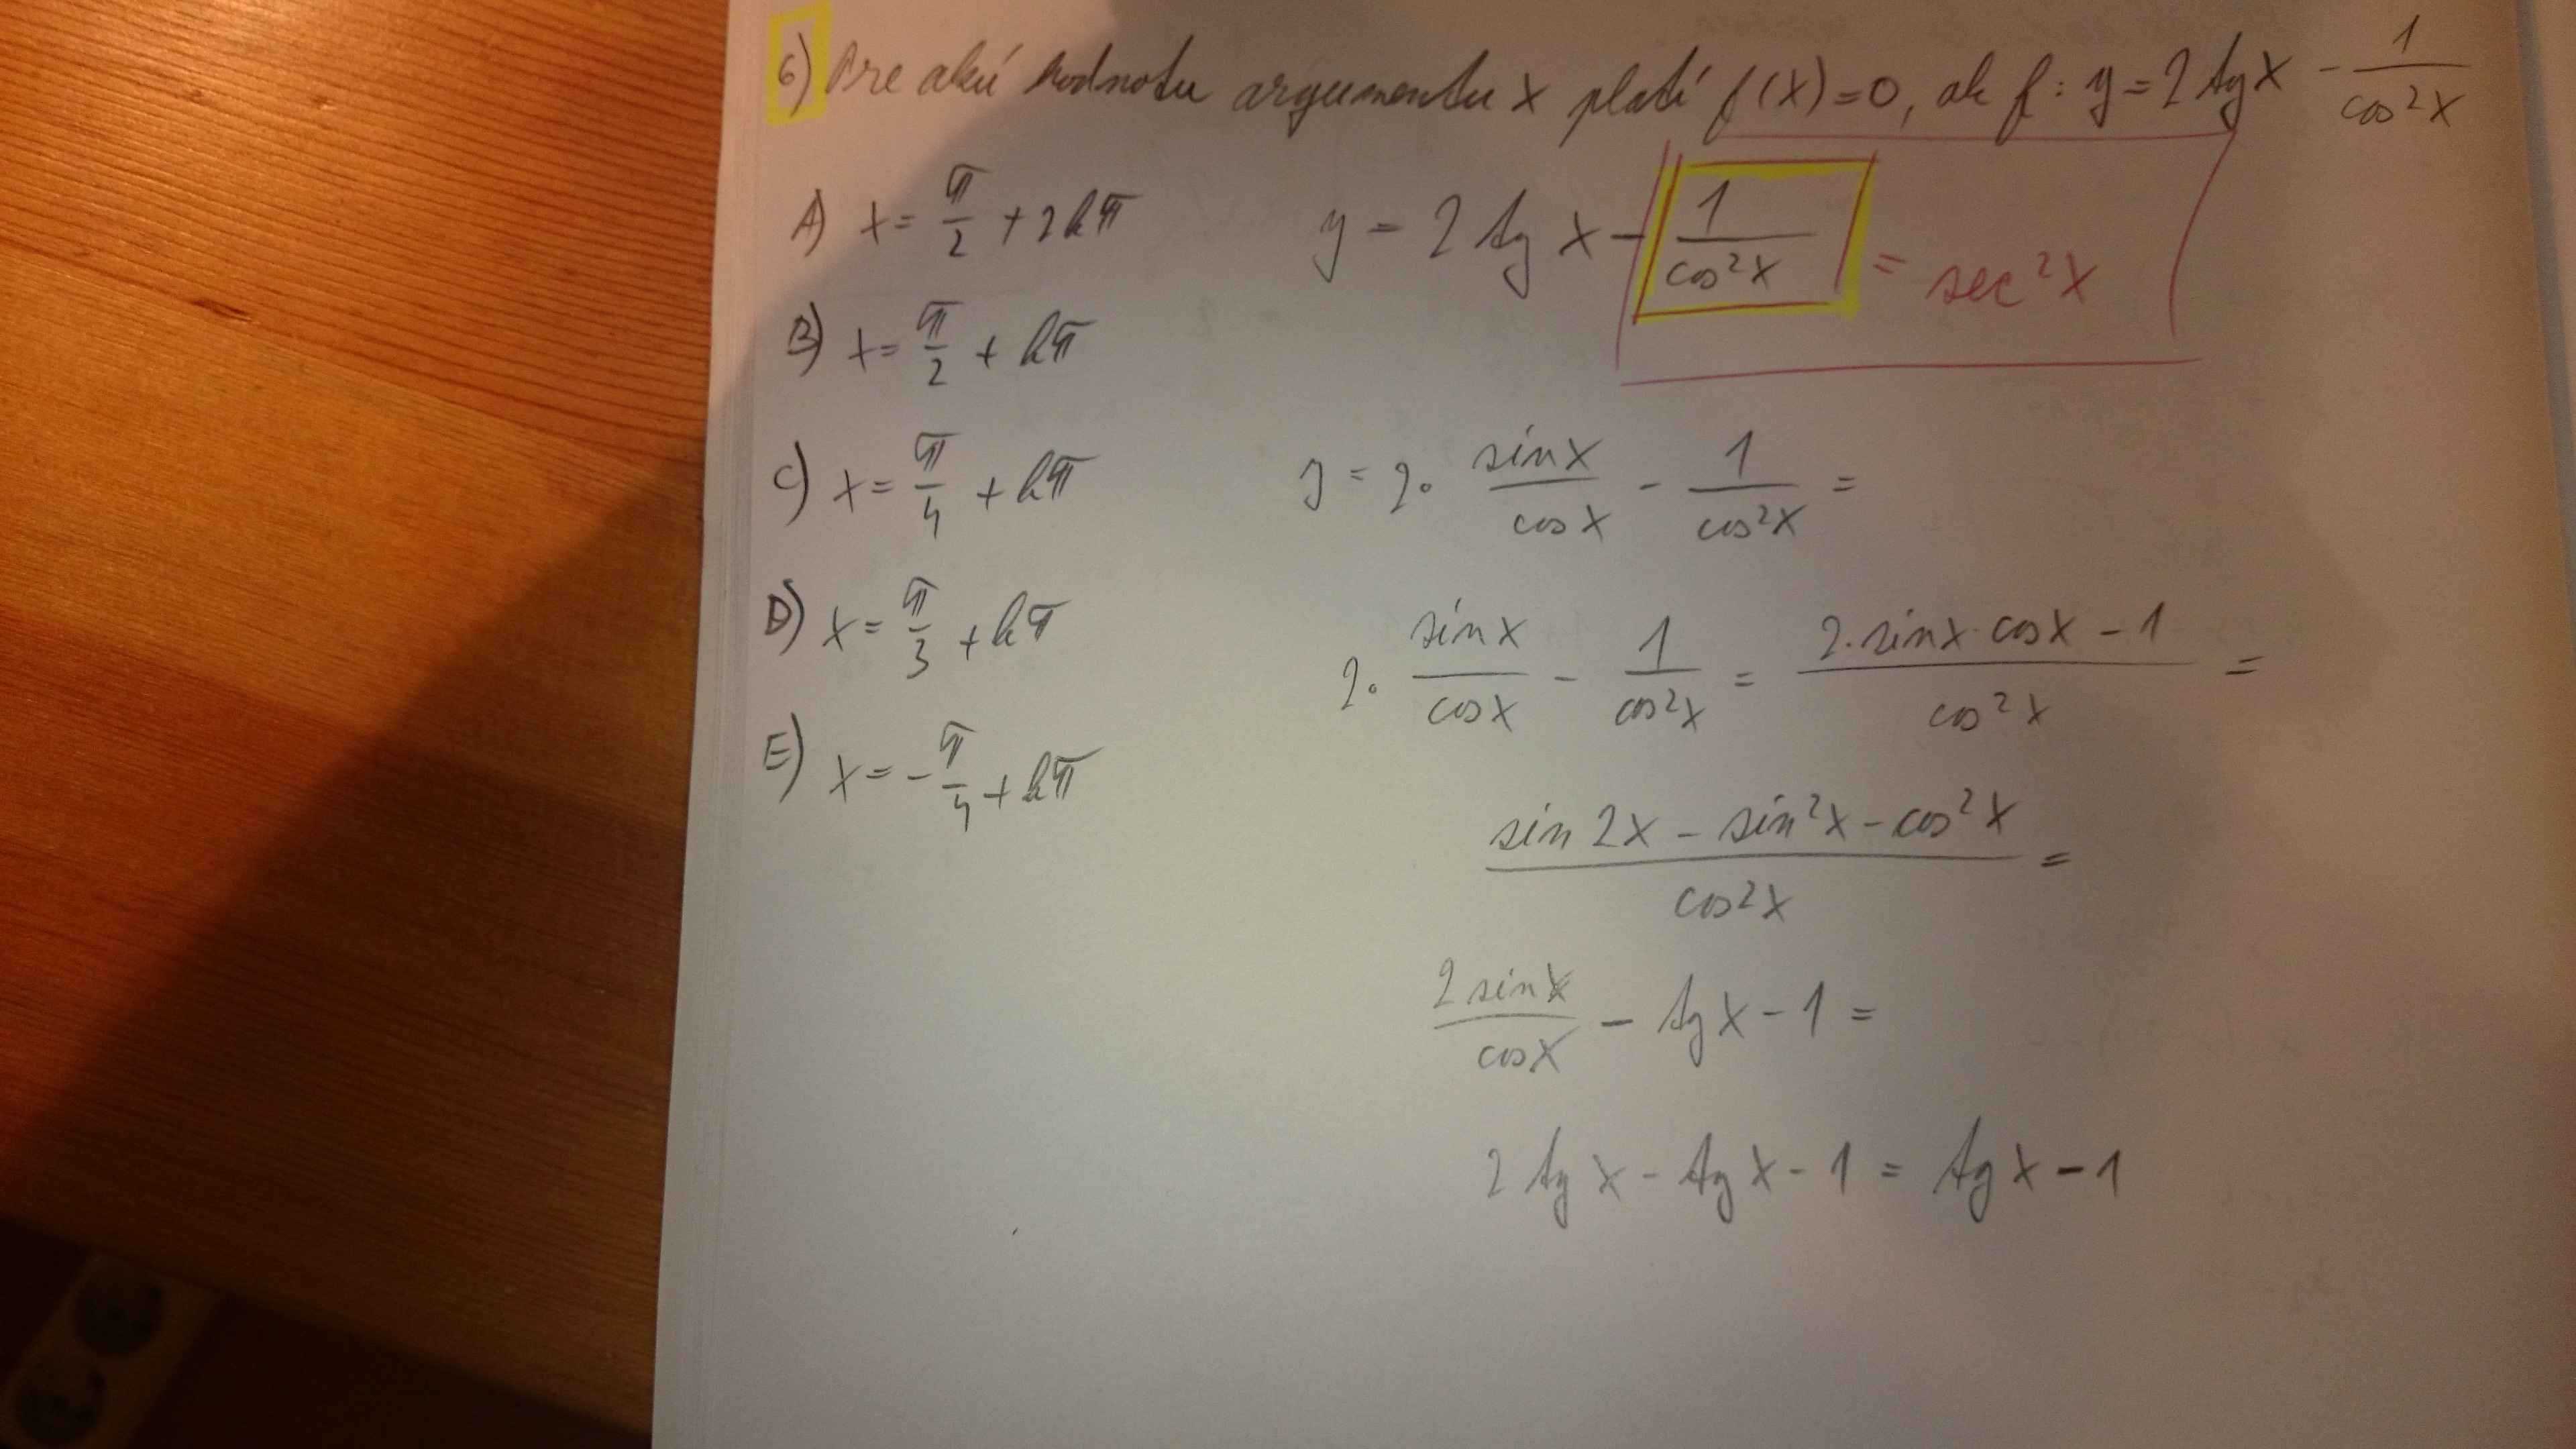 6) Pre akú hodnotu argumentu x platí f(x)=0, ak f: y=2 tg x - 1/cos²x
A) x = π/2 + 2kπ
B) x = π/2 + kπ
C) x = π/4 + kπ
D) x = π/3 + kπ
E) x = -π/4 + kπ
y = 2 tg x - 1/cos²x = sec²x
y = 2 · sin x/cos x - 1/cos²x =
2 · sin x/cos x - 1/cos²x = (2·sin x·cos x - 1)/cos²x =
(sin 2x - sin²x - cos²x)/cos²x =
2 sin x/cos x - tg x - 1 =
2 tg x - tg x - 1 = tg x - 1